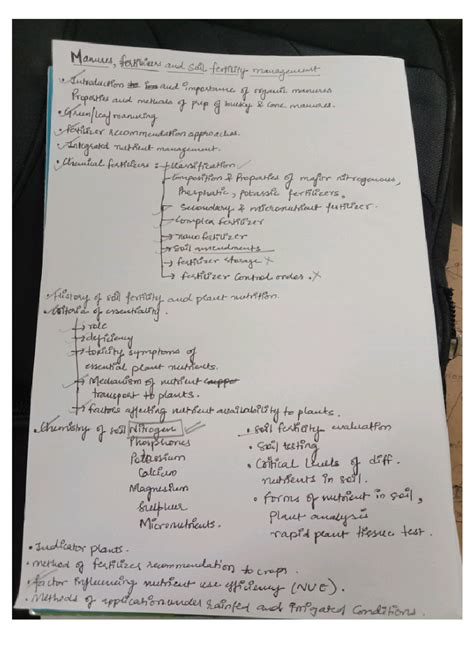 Manures, fertilizers and soil fertility management
• Introduction and importance of organic manures
Properties and methods of prep of bulky & conc manures.
• Green/leaf manuring
• Fertilizer recommendation approaches.
• Integrated nutrient management.
• Chemical fertilizers : → classification
→ Composition & Properties of major nitrogenous,
Phosphatic, potassic fertilizers.
→ Secondary & micronutrient fertilizer.
→ Complex fertilizer
→ nano fertilizer
→ Soil amendments
→ fertilizer storage X
→ fertilizer control order. X
• History of soil fertility and plant nutrition
• Criteria of essentiality.
→ role
→ deficiency
→ toxicity symptoms of
essential plant nutrients.
→ Mechanism of nutrient
transport to plants.
→ factors affecting nutrient availability to plants.
• Chemistry of soil Nitrogen
Phosphorus
Potassium
Calcium
Magnesium
Sulfur
Micronutrients.
• Soil fertility evaluation
• Soil testing
• Critical levels of diff.
nutrients in soil.
• forms of nutrient in soil,
plant analysis
rapid plant tissue test.
• Indicator plants.
• method of fertilizer recommendation to crops.
• factor influencing nutrient use efficiency (NUE).
• Methods of application under rainfed and irrigated conditions.